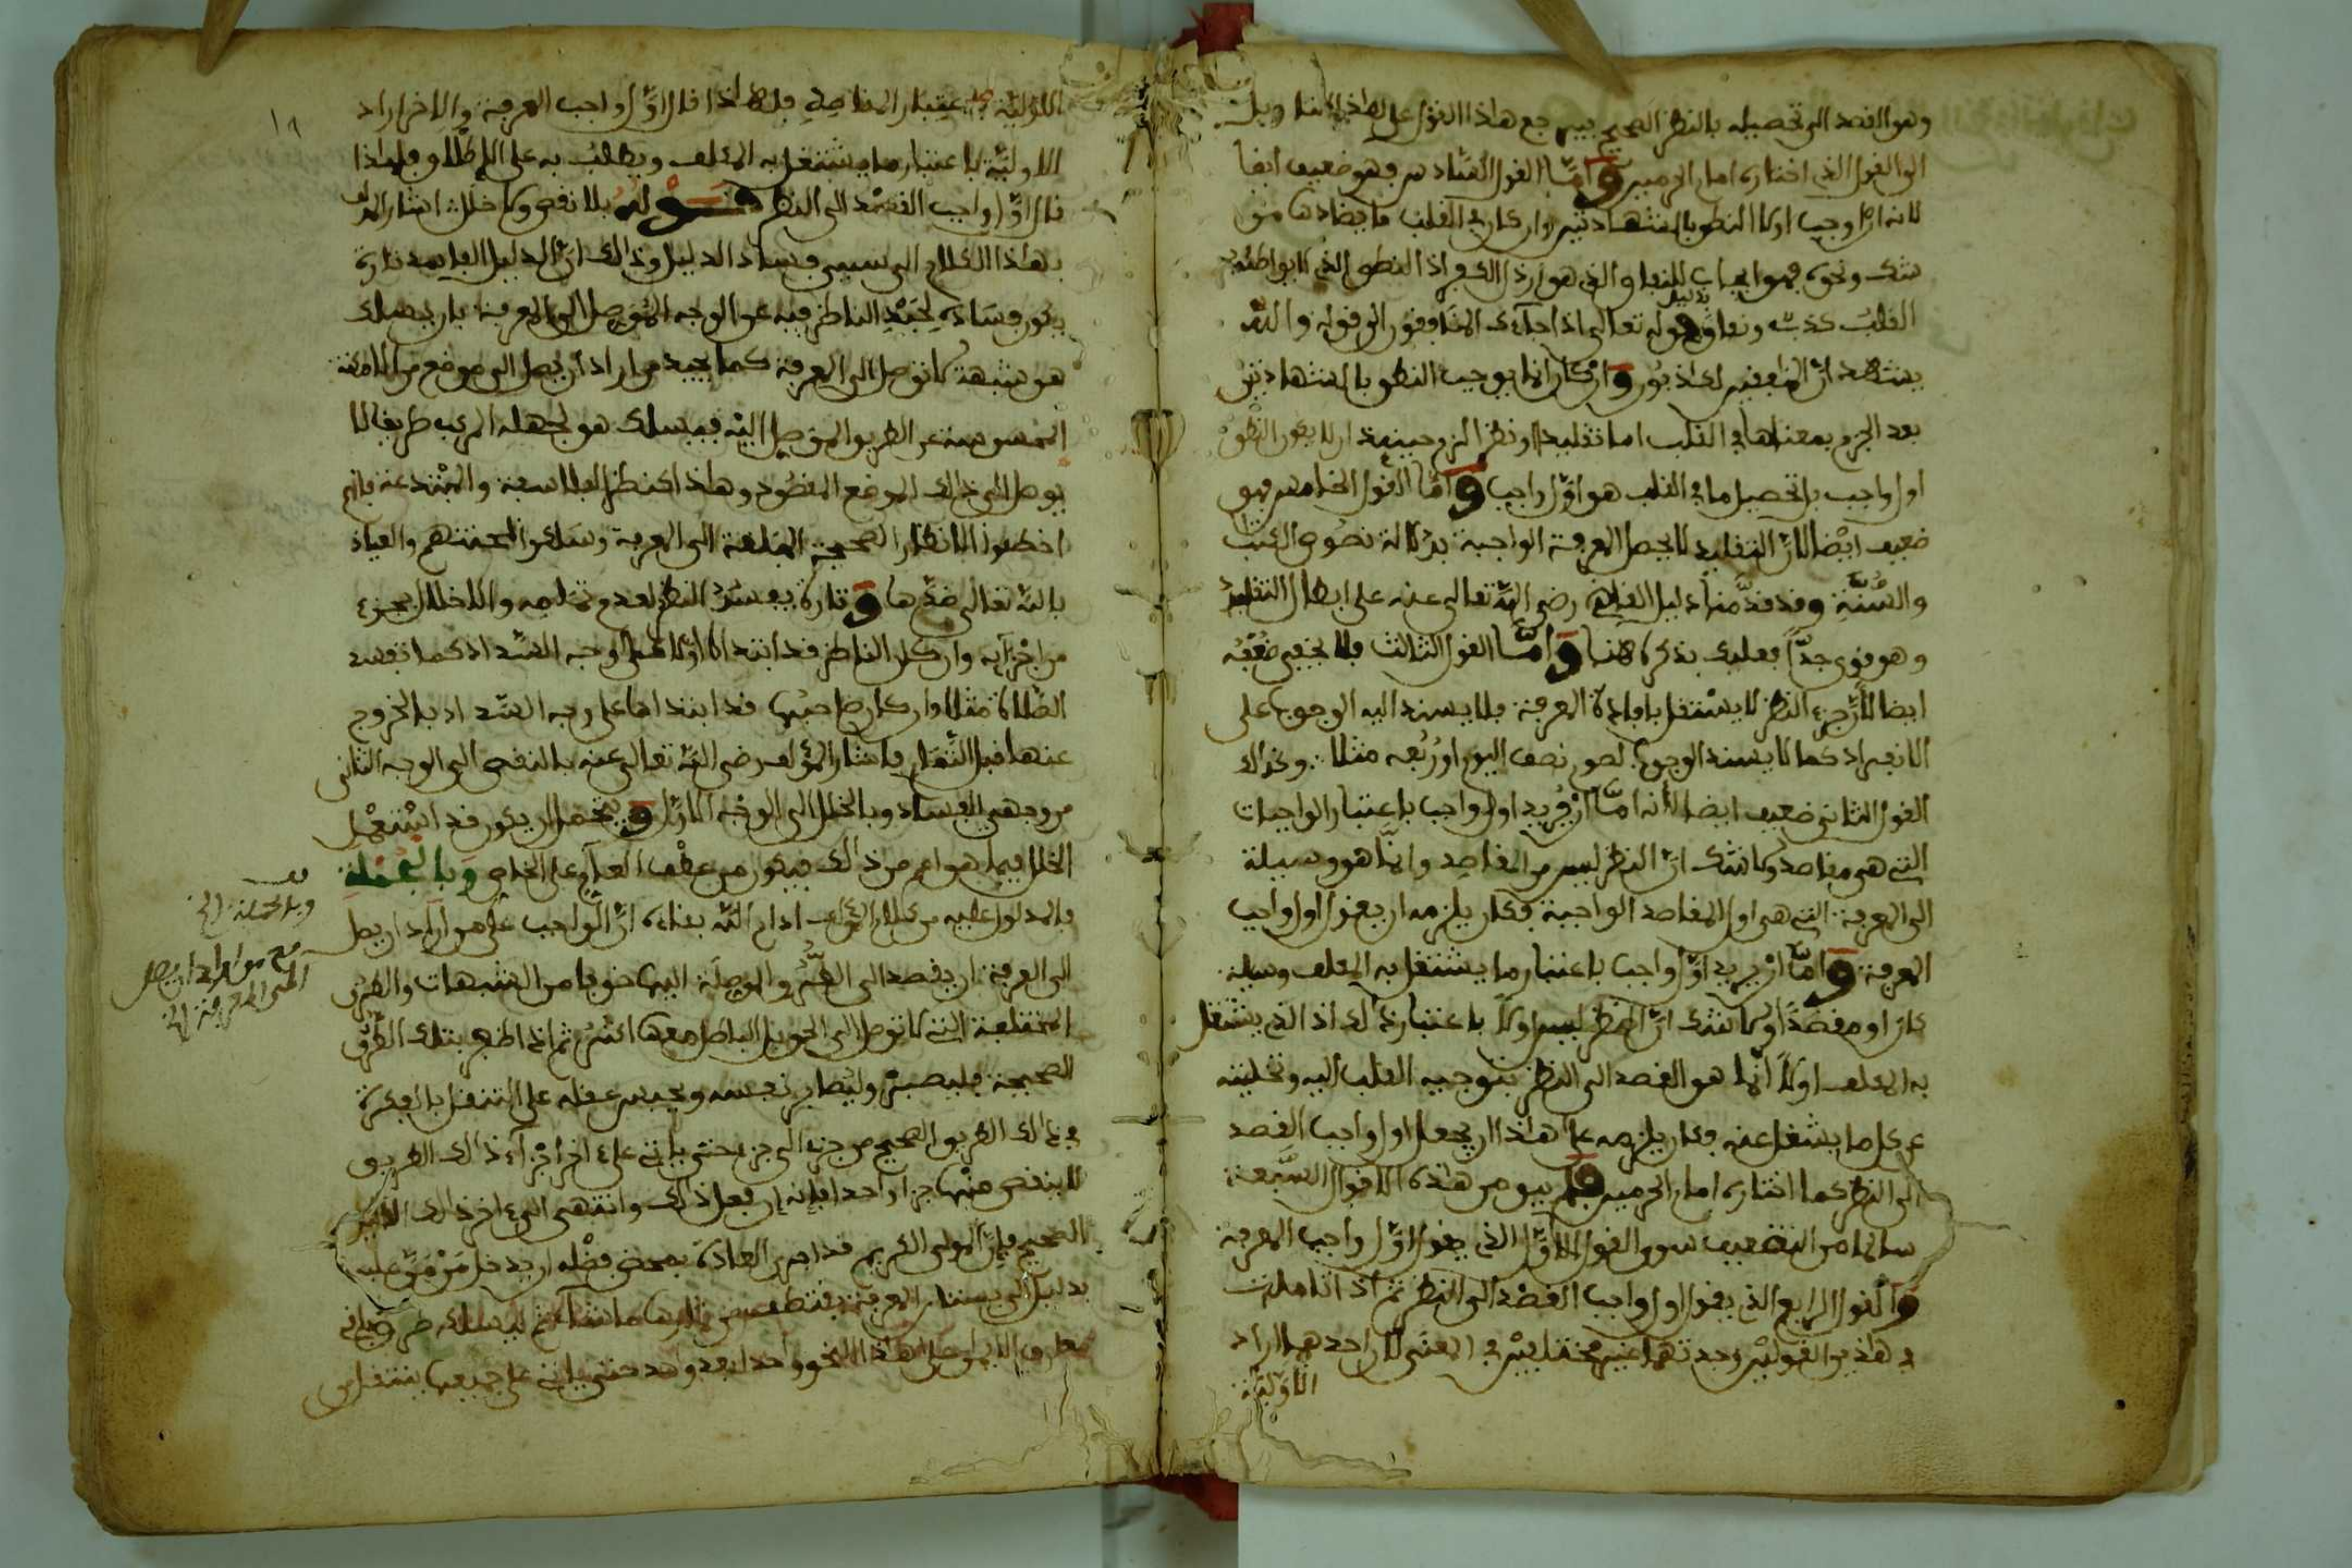 وهو القصد الى تحصيله بالنظر الصحيح فيرجع هاذا القول على هاذا التاويل
الى القول الذى اختاره امام الحرمين وامّا القول السادس فهو ضعيف ايضا
لانه ان اوجب اولا النطق بالشهادتين وان كان في القلب ما يضادها من
شك ونحوه فهو ايجاب للنفاق الذى هو اذ ذالك اذ النطق الذى لا يواطئه
القلب كذب ونفاق بدليل قوله تعالى اذا جاءك المنافقون الى قوله والله
يشهد انّ المنافقين لكاذبون وان كان انما يوجب النطق بالشهادتين
بعد الجزم بمعناها في القلب اما تقليدا او نظرا لزم حينئذ ان لا يكون النطق
اول واجب بل تحصيل ما في القلب هو اوّل واجب وامّا القول الخامس فهو
ضعيف ايضا لانّ التقليد لا يحصل المعرفة الواجبة بدلالة نصوص الكتاب
والسُّنّة وقد قدّمنا دليل القاضى رضى الله تعالى عنه على ابطال التقليد
وهو قوى جدّا فعليك بذكره هنا وامّا القول الثالث فلا يخفى ضعفه
ايضا لانّ جزء النظر لا يستقل بافادة المعرفة فلا يسند اليه الوجوب على
الانفراد كما لا يسند الوجوب لصوم نصف اليوم او رُبُعه مثلا وكذالك
القول الثانى ضعيف ايضا لانه امّا ان يريد اول واجب باعتبار الواجبات
التى هى مقاصد ولا شك انّ النظر ليس من المقاصد وانّما هو وسيلة
الى المعرفة التى هى اول المقاصد الواجبة فكان يلزمه ان يقول اول واجب
المعرفة وامّا ان يريد اوّل واجب باعتبار ما يشتغل به المكلف وسيلة
كان او مقصدًا ولا شك انّ النظر ليس اولا باعتبار ذالك اذ الذى يشتغل
به المكلف اولا انّما هو القصد الى النظر بتوجيه القلب اليه وتخليته
عن كل ما يشغل عنه فكان يلزمه على هاذا ان يجعل اول واجب القصد
الى النظر كما اختاره امام الحرمين فلم يبق من هذه الاقوال السّبعة
سالما من التضعيف سوى القول الاوّل الذى يقول اوّل واجب المعرفة
والقول الرابع الذى يقول اول واجب القصد الى النظر ثم اذا تاملت
في هاذين القولين وجدتهما غير مختلفين في المعنى لان احدهما اراد
الاوّليّة
الاوّليّة باعتبار المقاصد فلهاذا قال اوّل واجب المعرفة والاخر اراد
الاوليّة باعتبار ما يشتغل به المكلف ويطلب به على الاطلاق فلهاذا
قال اوّل واجب القصد الى النظر قوله بلا نقص ولا خلل اشار المؤلف
بهاذا الكلام الى سببى فساد الدليل وذالك انّ الدليل الفاسد تارة
يكون فساده لحَيْد الناظر فيه عن الوجه الموصل الى المعرفة بان يسلك
هو شبهة لا توصل الى المعرفة كما يحيد من اراد ان يصل الى موضع من الامكنة
المحسوسة عن الطريق الموصل اليه فيسلك هو لجهله المركب طريقا لا
يوصل الى ذالك الموضع المقصود وهاذا كنظر الفلاسفة والمبتدعة فانهم
اخطئوا الانظار الصحيحة المبلغة الى المعرفة وسلكوا والعياذ
بالله تعالى ضدّها وتارة يفسد النظر لعدم تمامه والاخلال بجزء
من اجزائه وان كان الناظر قد ابتدا اولا على وجه السّداد كما تفسد
الصّلاة مثلا وان كان صاحبُها قد ابتداها على وجه السّداد بالخروج
عنها قبل التّمام فاشار المؤلف رضى الله تعالى عنه بالنقص الى الوجه الثانى
من وجهى الفساد وبالخلل الى الوجه الاوّل ويحتمل ان يكون قد استعمل
الخلل فيما هو اعم من ذالك فيكون من عطف العام على الخاص وبالجملة
فالمدلول عليه من كلام المؤلف ادام الله بقاءه انّ الواجب على من اراد ان يصل
الى المعرفة ان يقصد الى الطُّرُق الموصلة اليها خوفا من الشبهات والطرق
المختلفة التى لا توصل الى الحق بل الباطل معها اكثر ثم اذا ظفر بتلك الطرق
الصحيحة فليصبرْ وليُصابر نفسه ويحبس عقله على التنقل بالفكرة
في ذالك الطريق الصحيح من جزء الى جزء حتى ياتى على اخر اجزاء ذالك الطريق
لا ينقص منها جزءا واحدا فانه ان فعل ذالك وانتهى الى اخر ذالك
الصحيح فانّ المولى الكريم قد اجرى العادة بمحض فضله ان يدخل مَن مَنّ عليه
بدليل الى بستان المعرفة فيقتطف من ثمارها ما شاء ثم يسلك
على هذا النحو واحدا بعد واحد حتى ياتى على جميعها يتنقل من
قف
وبالجملة الخ
مع من اراد ان يصل
الى المعرفة الخ